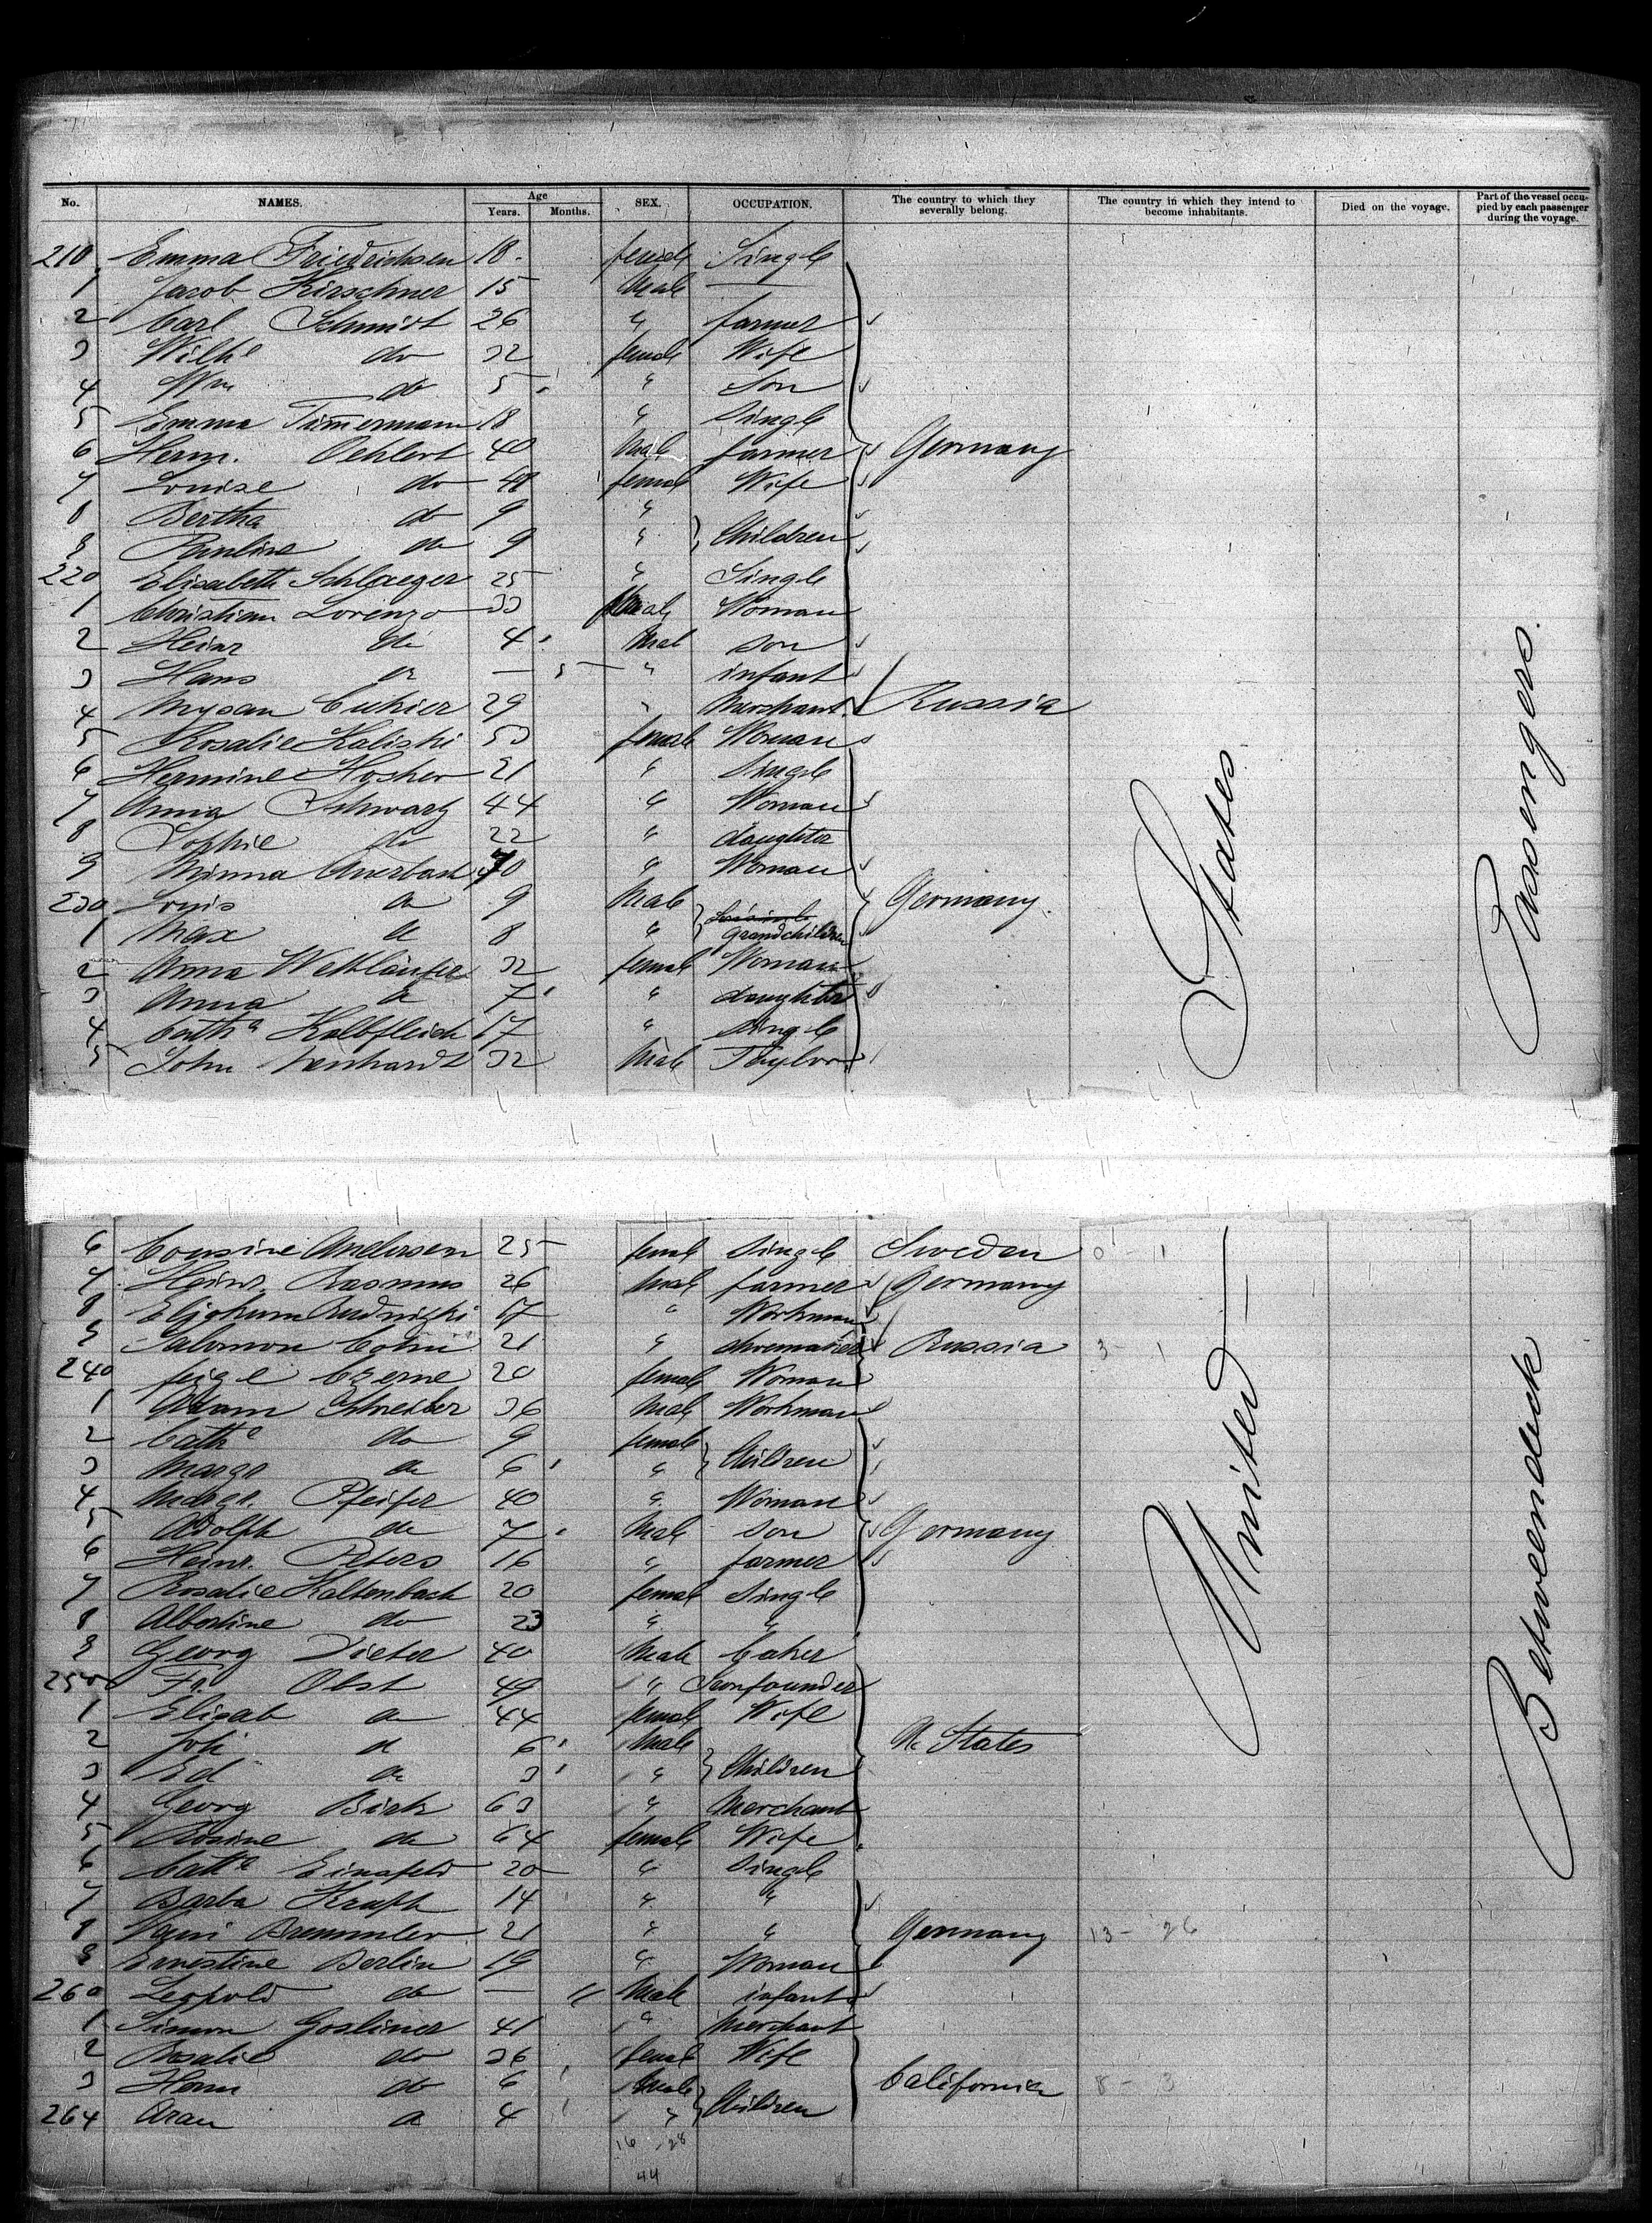 No. NAMES. Age Years. Months. SEX. OCCUPATION. The country to which they severally belong. The country in which they intend to become inhabitants. Died on the voyage. Part of the vessel occupied by each passenger during the voyage.
210 Emma Friedrichsen 18 female Single
1 Jacob Kirschner 15 Male —
2 Carl Schmidt 26 " farmer
3 Wilhe do 32 female Wife
4 Wm do 5 " Son
5 Emma Timermann 18 " Single
6 Herm. Oehlert 40 Male farmer Germany
7 Louise do female Wife
8 Bertha do 9 "
9 Pauline do 9 " Children
220 Elisabeth Schlaeger 25 " Single
1 Christian Lorenzo 33 Woman
2 Heinr do 4 Male son
3 Hans do — 5 " infant
4 29 " Merchant Russia
5 Rosalie Kaliski 53 female Woman
6 Hermine 21 " Single
7 Anna Schwarz 44 " Woman
8 Sophie do 22 " daughter
9 Minna Auerbach 70 " Woman
230 Louis do 9 Male Germany
1 Max do 8 " Grandchildren
2 Anna Wettläufer 32 female Woman
3 Anna do 7 " daughter
4 Cathe Kalbfleich 17 " Single
5 John Lenhardt 32 Male Taylor
States
Passengers.
6 Cousine Andersen 25 female Single Sweden 0 1
7 Heinr. Rasmus 26 Male farmer Germany
8 Rudnizki 17 " Workman
9 Salomon Cohn 21 " Russia 3 - 1
240 feige Czerne 20 female Woman
1 Adam Schreiber 36 Male Workman
2 Cathe do 9 female
3 Margr do 6 " Children
4 Margr. Pfeifer 40 " Woman
5 Adolph do 7 Male Son Germany
6 Heinr. Peters 16 " farmer
7 Rosalie Kaltenbach 20 female Single
8 Albertine do 23 " "
9 Georg Dieter 40 Male baker
250 Fr. Obst 49 " Ironfounder
1 Elisab do 44 female Wife
2 Joh do 6 Male U. States
3 Ed do 3 " Children
4 Georg Birk 63 " Merchant
5 Rosine do 64 female Wife
6 Cathe Einsfeld 20 " Single
7 Barba Kraft 14 " "
8 Bremmler 21 " " Germany 13 - 26
9 Ernestine Berlin 19 " Woman
260 Leopold do — 11 Male infant
1 Simon Gosliner 41 " Merchant
2 Rosalie do 36 female Wife
3 Herm do 6 Male California 8 - 3
264 Aran do 4 " Children
16 - 28
44
United
Betweendeck